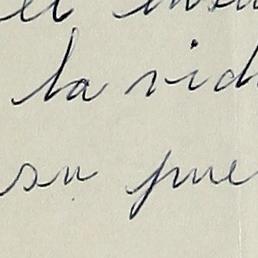 la vid
su pue